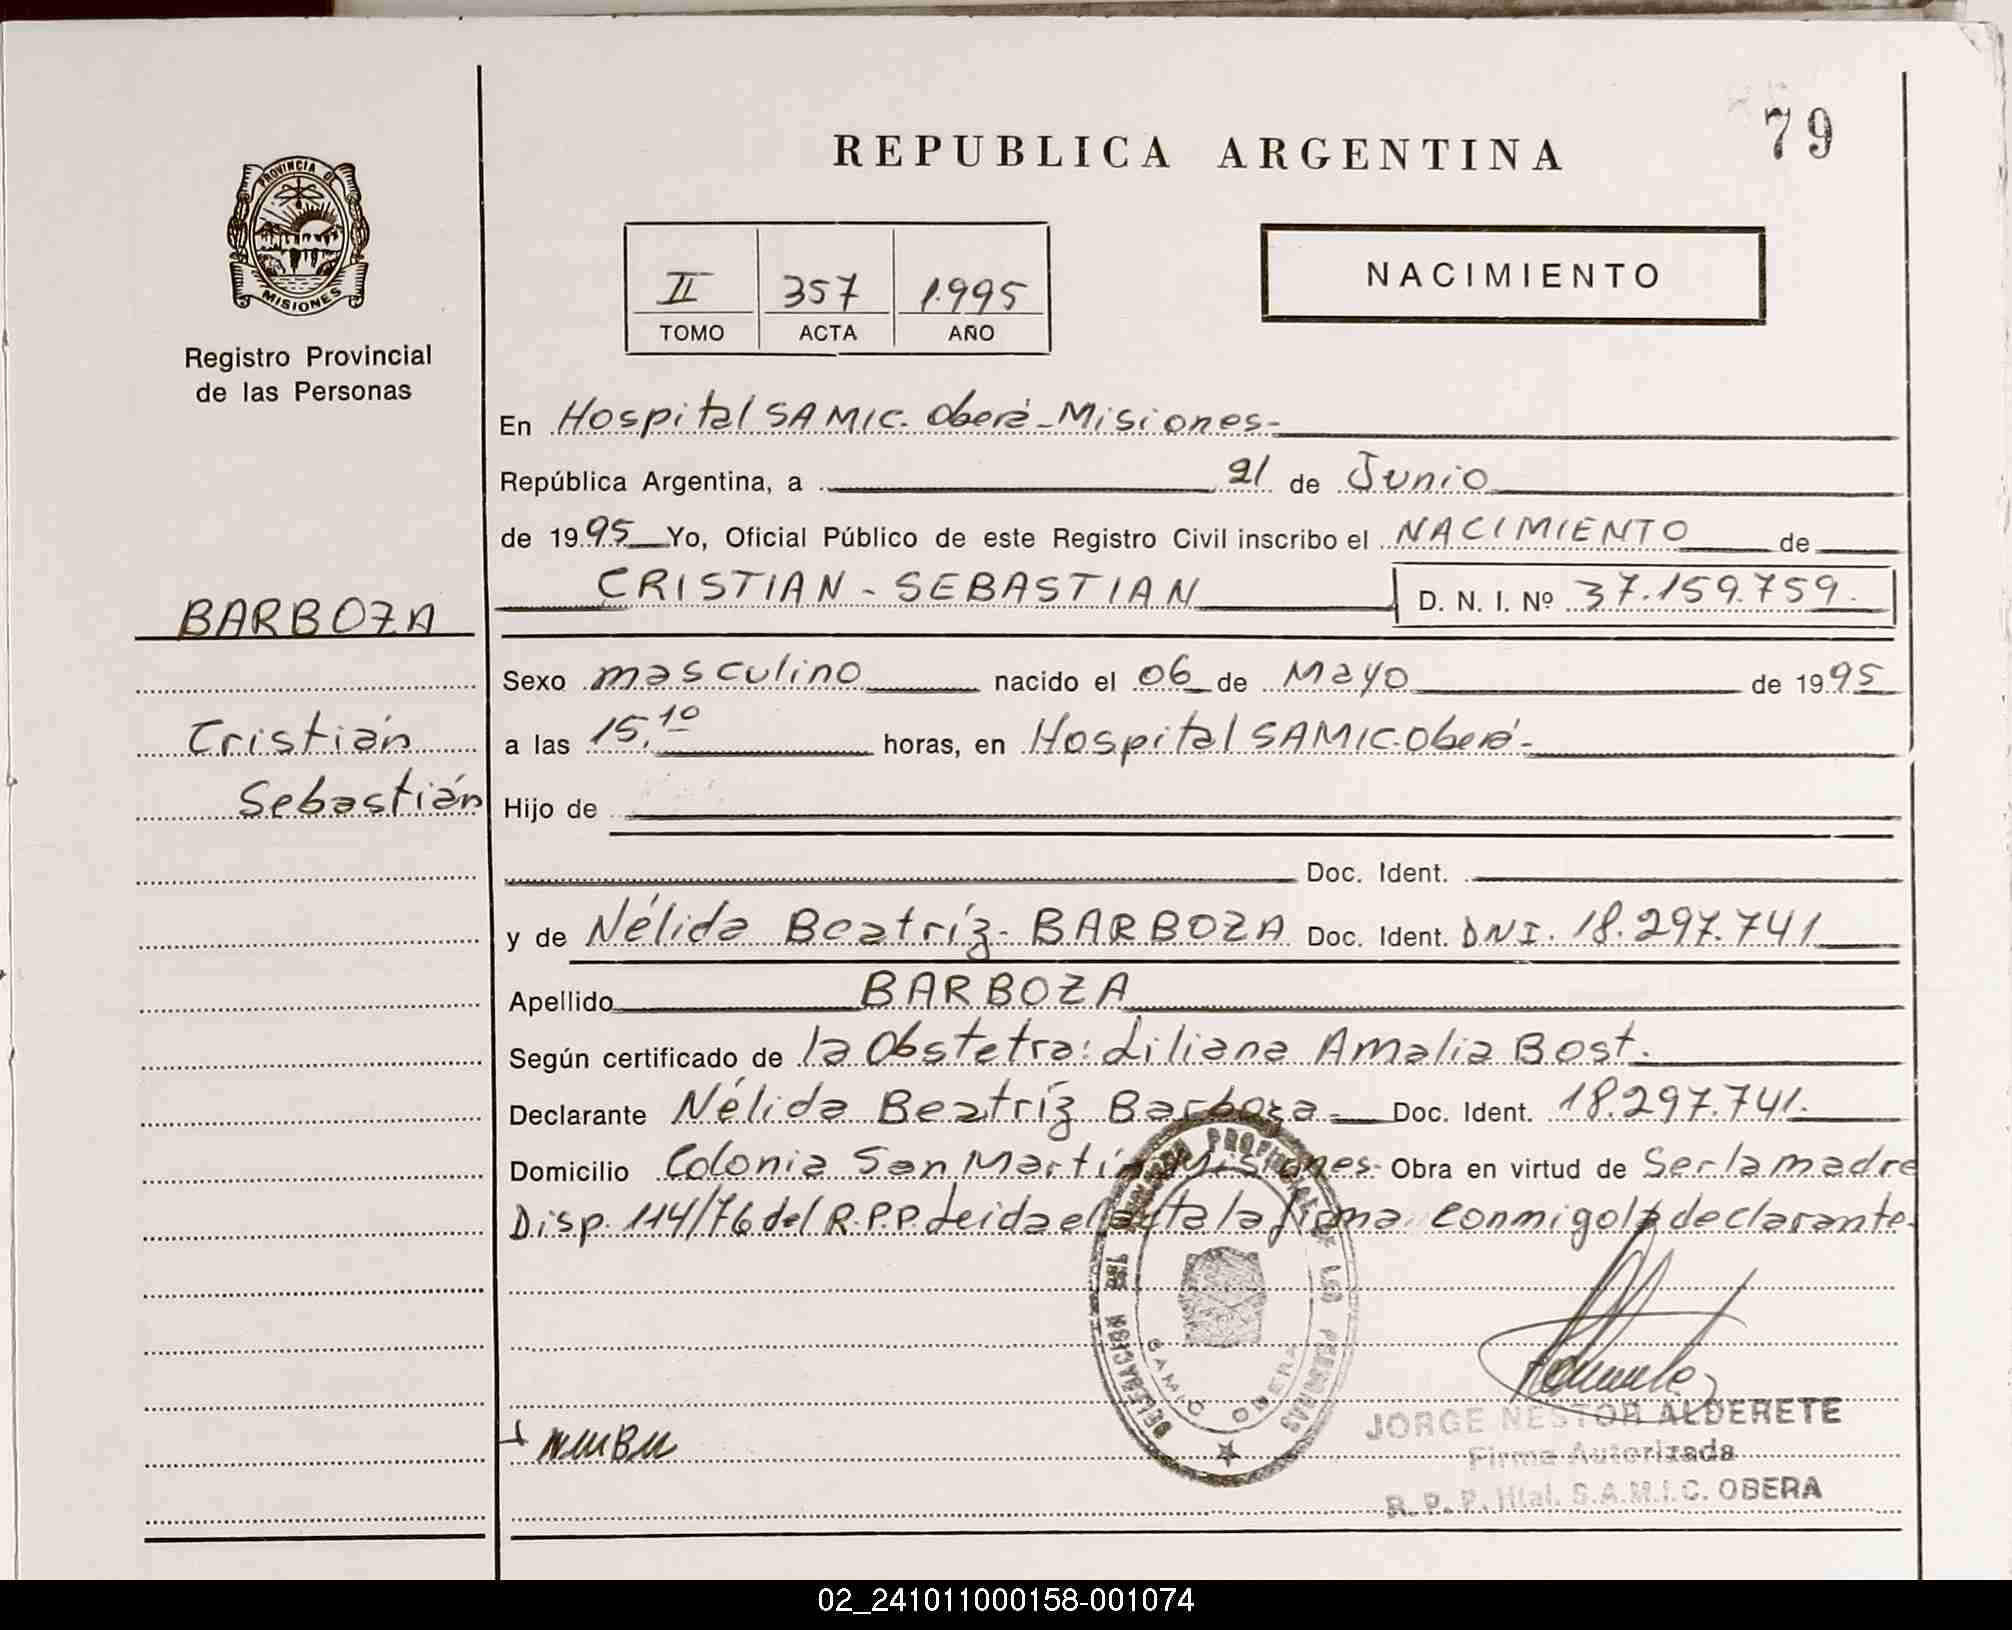 79
REPUBLICA ARGENTINA
PROVINCIA DE
MISIONES
Registro Provincial
de las Personas
II 357 1.995
TOMO ACTA AÑO
NACIMIENTO
En Hospital SAMIC. Oberá-Misiones-
República Argentina, a 21 de Junio
de 1995 Yo, Oficial Público de este Registro Civil inscribo el NACIMIENTO de
CRISTIAN - SEBASTIAN D. N. I. Nº 37.159.759.
BARBOZA
Sexo masculino nacido el 06 de Mayo de 1995
Cristián
a las 15,10 horas, en Hospital SAMIC-Oberá-
Sebastián
Hijo de
Doc. Ident.
y de Nélida Beatríz- BARBOZA Doc. Ident. DNI. 18.297.741
Apellido BARBOZA
Según certificado de la Obstetra: Liliana Amalia Bost.
Declarante Nélida Beatríz Barboza- Doc. Ident. 18.297.741.
Domicilio Colonia San Martín Misiones- Obra en virtud de Ser la madre
Disp. 114/76 del R.P.P. Leida el acta la firma conmigo la declarante.
DELEGACION
LAS PERSONAS
SAMIC OBERA
JORGE NESTOR ALDERETE
Firma Autorizada
R. P. P. Htal. S.A.M.I.C. OBERA
02_241011000158-001074